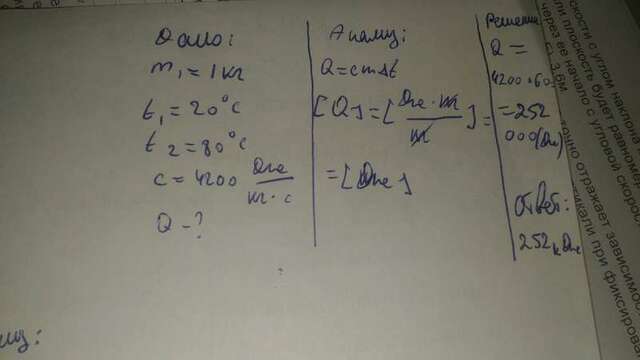 Дано:
m₁ = 1 кг
t₁ = 20°C
t₂ = 80°C
c = 4200 Дж/кг·C
Q - ?
Анализ:
Q = cmΔt
[Q] = [Дж·кг/кг] =
= [Дж]
Решение
Q =
4200·60
= 252
000(Дж)
Ответ:
252 кДж
скости с углом накло
или плоскость будет равноме
через ее начало с угловой скоро
3,6м
точно отражает зависимос
при фиксирова